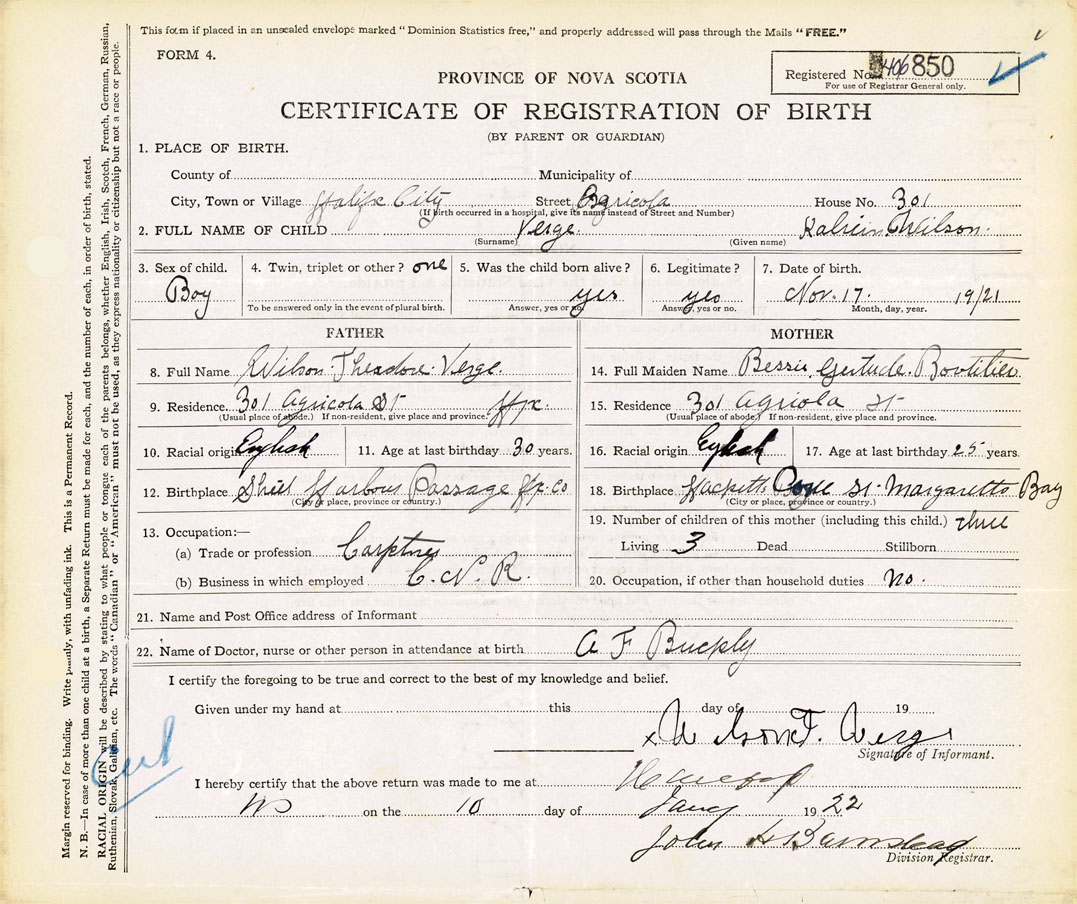 This form if placed in an unsealed envelope marked "Dominion Statistics free," and properly addressed will pass through the Mails "FREE."
FORM 4.
PROVINCE OF NOVA SCOTIA
Registered No. 406850
For use of Registrar General only.
CERTIFICATE OF REGISTRATION OF BIRTH
(BY PARENT OR GUARDIAN)
1. PLACE OF BIRTH.
County of Municipality of
City, Town or Village Halifx City Street, Agricola House No. 301
(If birth occurred in a hospital, give its name instead of Street and Number)
2. FULL NAME OF CHILD Verge. Wilson.
(Surname) (Given name)
3. Sex of child. 4. Twin, triplet or other? one 5. Was the child born alive? 6. Legitimate? 7. Date of birth.
Boy yes yes Nov. 17. 19/21
To be answered only in the event of plural birth. Answer, yes or no. Answer, yes or no. Month, day, year.
FATHER MOTHER
8. Full Name Wilson Theadore Verge. 14. Full Maiden Name Bessie Gertude. Boutilier
9. Residence 301 Agricola St Hfx. 15. Residence 301 Agriola St
(Usual place of abode.) If non-resident, give place and province. (Usual place of abode.) If non-resident, give place and province.
10. Racial origin English 11. Age at last birthday 30 years. 16. Racial origin English 17. Age at last birthday 25 years.
12. Birthplace Shiel Harbour Passage Hfx. Co 18. Birthplace Hacketts Cove St. Margaretts Bay
(City or place, province or country.) (City or place, province or country.)
13. Occupation:— 19. Number of children of this mother (including this child.) three
(a) Trade or profession Living 3 Dead Stillborn
(b) Business in which employed C. N. R. 20. Occupation, if other than household duties no.
21. Name and Post Office address of Informant
22. Name of Doctor, nurse or other person in attendance at birth A F Buckly
I certify the foregoing to be true and correct to the best of my knowledge and belief.
Given under my hand at this day of 19
x Wilson T. Verge
Signature of Informant.
I hereby certify that the above return was made to me at
NS on the 10 day of Jany 1922
John H Barnstead
Division Registrar.
Margin reserved for binding. Write plainly, with unfading ink. This is a Permanent Record.
N. B.—In case of more than one child at a birth, a Separate Return must be made for each, and the number of each, in order of birth, stated.
RACIAL ORIGIN will be described by stating to what people or tongue each of the parents belongs, whether English, Irish, Scotch, French, German, Russian,
Ruthenian, Slovak, Galician, etc. The words "Canadian" or "American" must not be used, as they express nationality or citizenship but not a race or people.